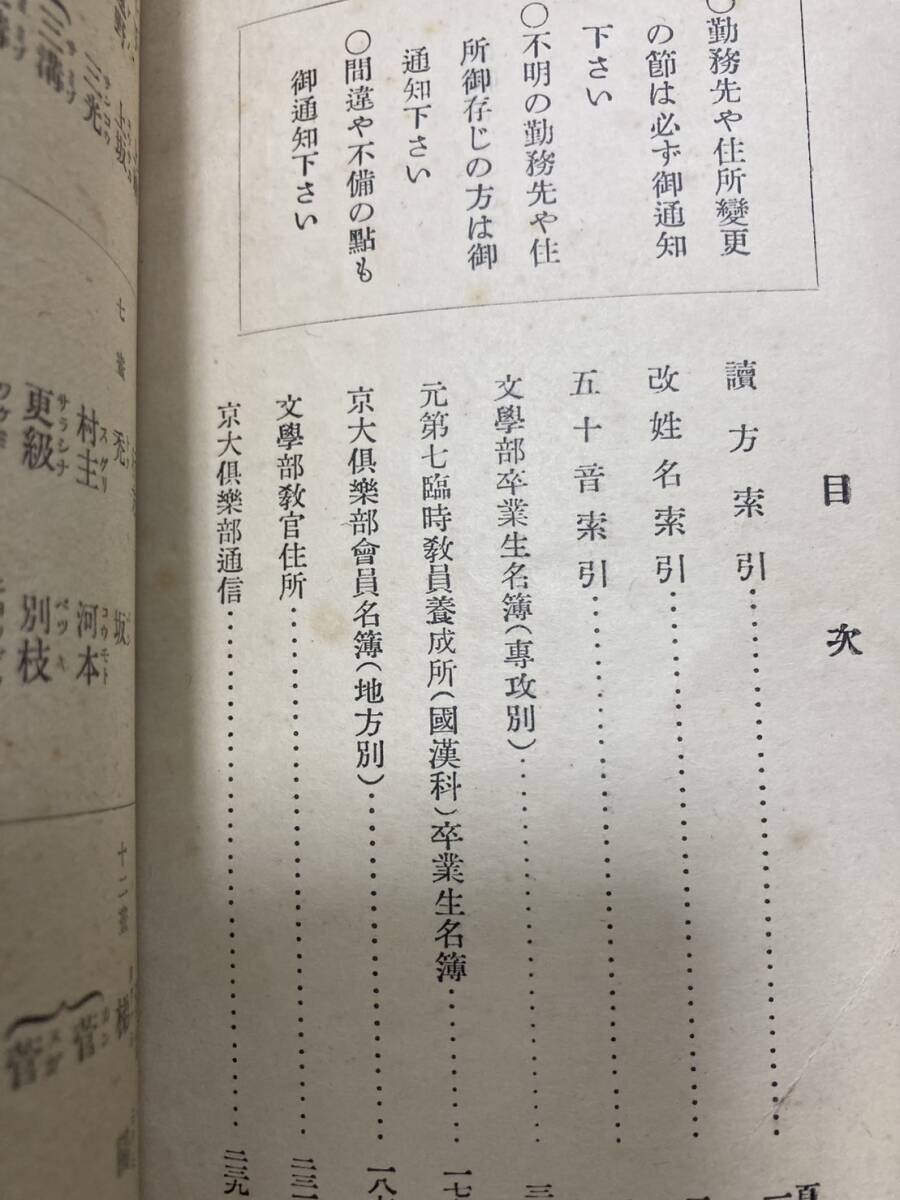 ○勤務先や住所變更
の節は必ず御通知
下さい
○不明の勤務先や住
所御存じの方は御
通知下さい
○間違や不備の點も
御通知下さい
目次
頁
讀方索引
改姓名索引
五十音索引
文學部卒業生名簿(專攻別)
元第七臨時敎員養成所(國漢科)卒業生名簿
京大俱樂部會員名簿(地方別)
文學部敎官住所
京大俱樂部通信 二三九
三光
三溝
村主
スグリ
更級
サラシナ
坂
河本
コウモト
別枝
ベツキ
菅
菅